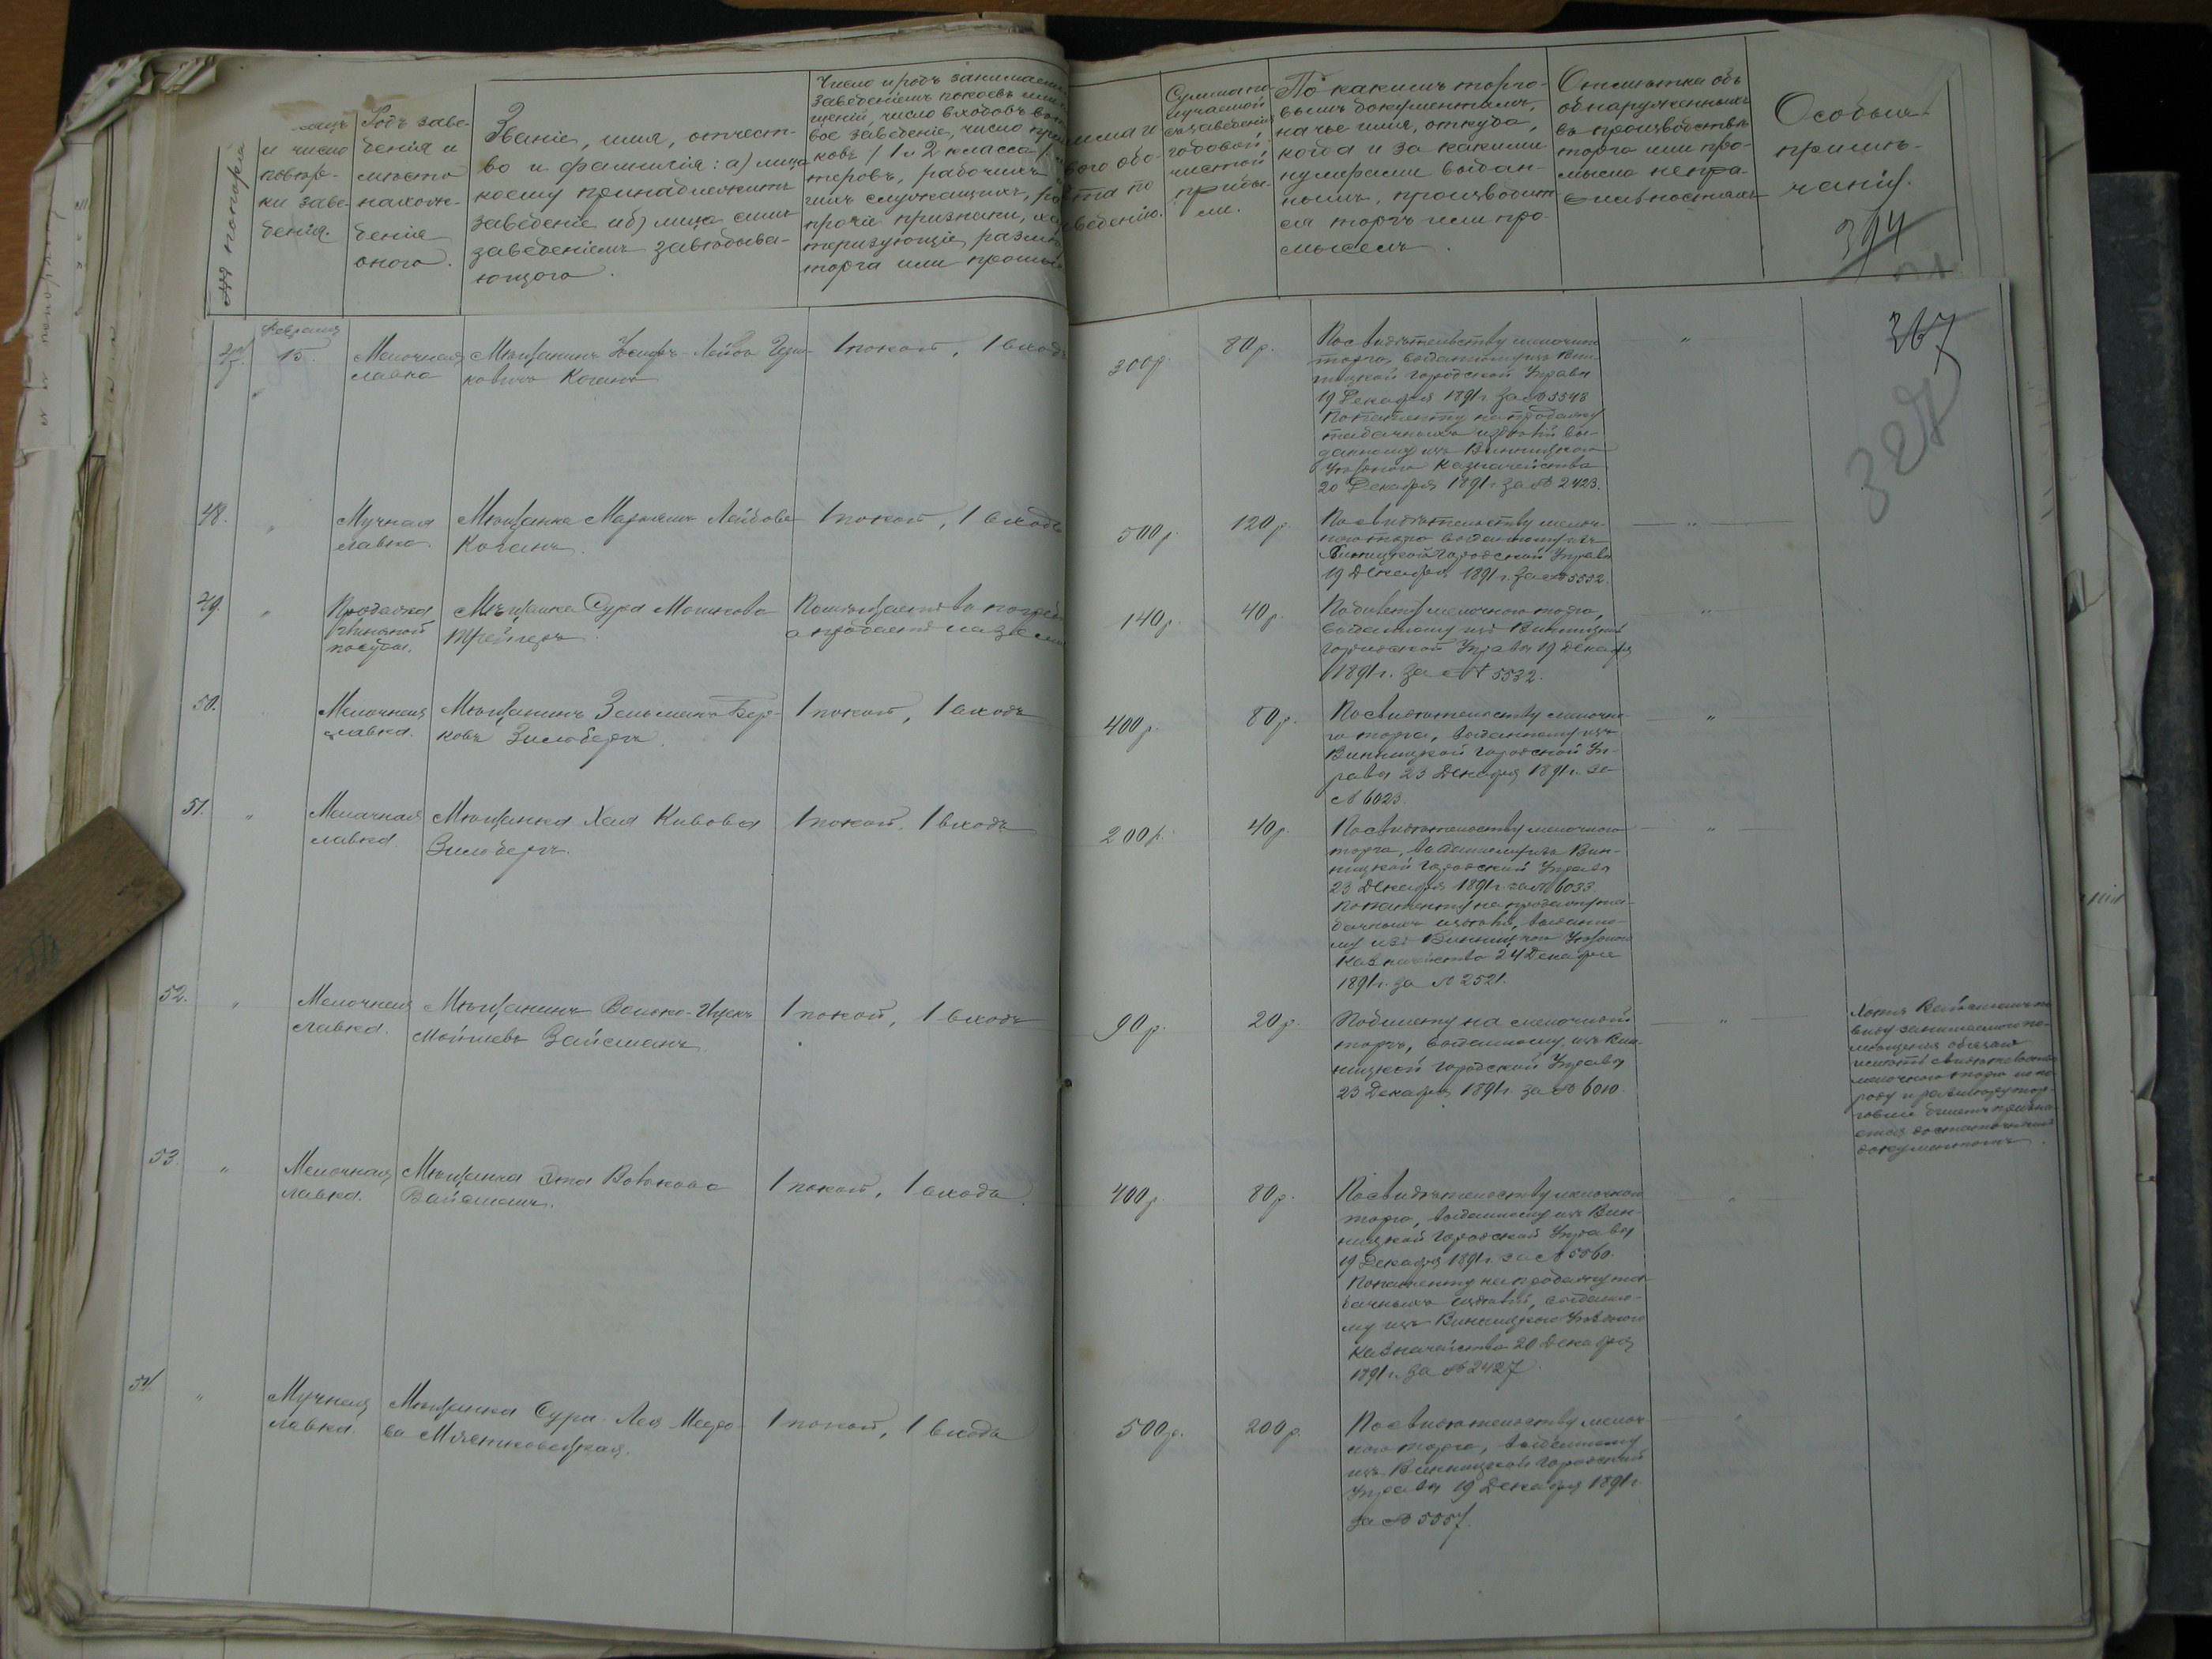 №№ по порядку
и число
повѣр-
ки заве-
денія.
Родъ заве-
денія и
мѣсто
нахож-
денія
онаго.
Званіе, имя, отчест-
во и фамилія: а) лица
коему принадлежитъ
заведеніе и б) лица симъ
заведеніемъ завѣдыва-
ющаго.
Число и родъ занимаем
заведеніемъ покоевъ или
щеній, число входовъ въ
вое заведеніе, число
ковъ (1 и 2 класса)
теровъ, рабочихъ
гихъ служащихъ,
прочіе признаки,
теризующіе размѣръ
торга или промысла
Сумма по-
лучаемой
съ заведенія
годовой
чистой
прибы-
ли.
По какимъ торго-
вымъ документамъ,
на чье имя, откуда,
когда и за какими
нумерами выдан-
нымъ, производит
ся торгъ или про-
мыселъ.
Отмѣтка объ
обнаруженныхъ
въ производствѣ
торга или про-
мысла непра-
вильностяхъ
Особыя
примѣ-
чанія.
394
367
327
47.
Февраля
15.
Мелочная
лавка
Мѣщанинъ Іосифъ-Лейба
ковичъ Коганъ
1 покой, 1 входъ
300 р.
80 р.
По свидѣтельству мелочнаго
торга, выданному изъ Вин-
ницкой Городской Управы
19 Декабря 1891 г. за № 5543
По патенту на продажу
табачныхъ издѣлій вы-
данному изъ Винницкаго
Уѣзднаго Казначейства
20 Декабря 1891 г. за № 2423.
"
48.
"
Мучная
лавка.
Мѣщанка Марьямъ Лейбова
Коганъ.
1 покой, 1 входъ
500 р.
120 р.
По свидѣтельству мелоч-
наго торга выданному изъ
Винницкой Городской Управы
19 Декабря 1891 г. за № 5552.
"
49.
"
Продажа
глиняной
посуды.
Мѣщанка Сура Мошкова
Помѣщается въ погребѣ
а продаетъ на
140 р.
40 р.
По билету мелочнаго торга,
выданному изъ Винницкой
Городской Управы 19 Декабря
1891 г. за № 5532.
"
50.
Мелочная
лавка.
Мѣщанинъ Зельманъ Бер-
ковъ Зильбергъ.
1 покой, 1 входъ
400 р.
80 р.
По свидѣтельству мелочна-
го торга, выданному изъ
Винницкой Городской Уп-
равы 23 Декабря 1891 г. за
№ 6023.
"
51.
"
Мелочная
лавка.
Мѣщанка Хая Кивова
Зильбергъ.
1 покой, 1 входъ
200 р.
40 р.
По свидѣтельству мелочнаго
торга, выданному изъ Вин-
ницкой Городской Управы
23 Декабря 1891 г. за № 6033.
По патенту на продажу та-
бачныхъ издѣлій, выданно-
му изъ Винницкаго Уѣзднаго
Казначейства 24 Декабря
1891 г. за № 2521.
"
52.
"
Мелочная
лавка.
Мѣщанинъ Волько-Ицекъ
Мойшевъ Вайсманъ
1 покой, 1 входъ
90 р.
20 р.
По билету на мелочной
торгъ, выданному изъ Вин-
ницкой Городской Управы
23 Декабря 1891 г. за № 6010.
"
Хотя Вайсманъ по
виду занимаемаго по-
мѣщенія обязанъ
имѣть свидѣтельство
мелочнаго торга но по
роду и размѣру тор-
говли билетъ призна-
ется достаточнымъ
документомъ.
53.
"
Мелочная
лавка.
Мѣщанка Эта Волькова
Вайсманъ.
1 покой, 1 входъ
400 р.
80 р.
По свидѣтельству мелочнаго
торга, выданному изъ Вин-
ницкой Городской Управы
19 Декабря 1891 г. за № 5560.
По патенту на продажу та-
бачныхъ издѣлій, выданно-
му изъ Винницкаго Уѣзднаго
Казначейства 20 Декабря
1891 г. за № 2427
"
54.
"
Мучная
лавка.
Мѣщанка Сура-Лея Мееро-
ва Мястковецкая.
1 покой, 1 входъ
500 р.
200 р.
По свидѣтельству мелоч-
наго торга, выданному
изъ Винницкой Городской
Управы 19 Декабря 1891 г.
за № 5557.
"